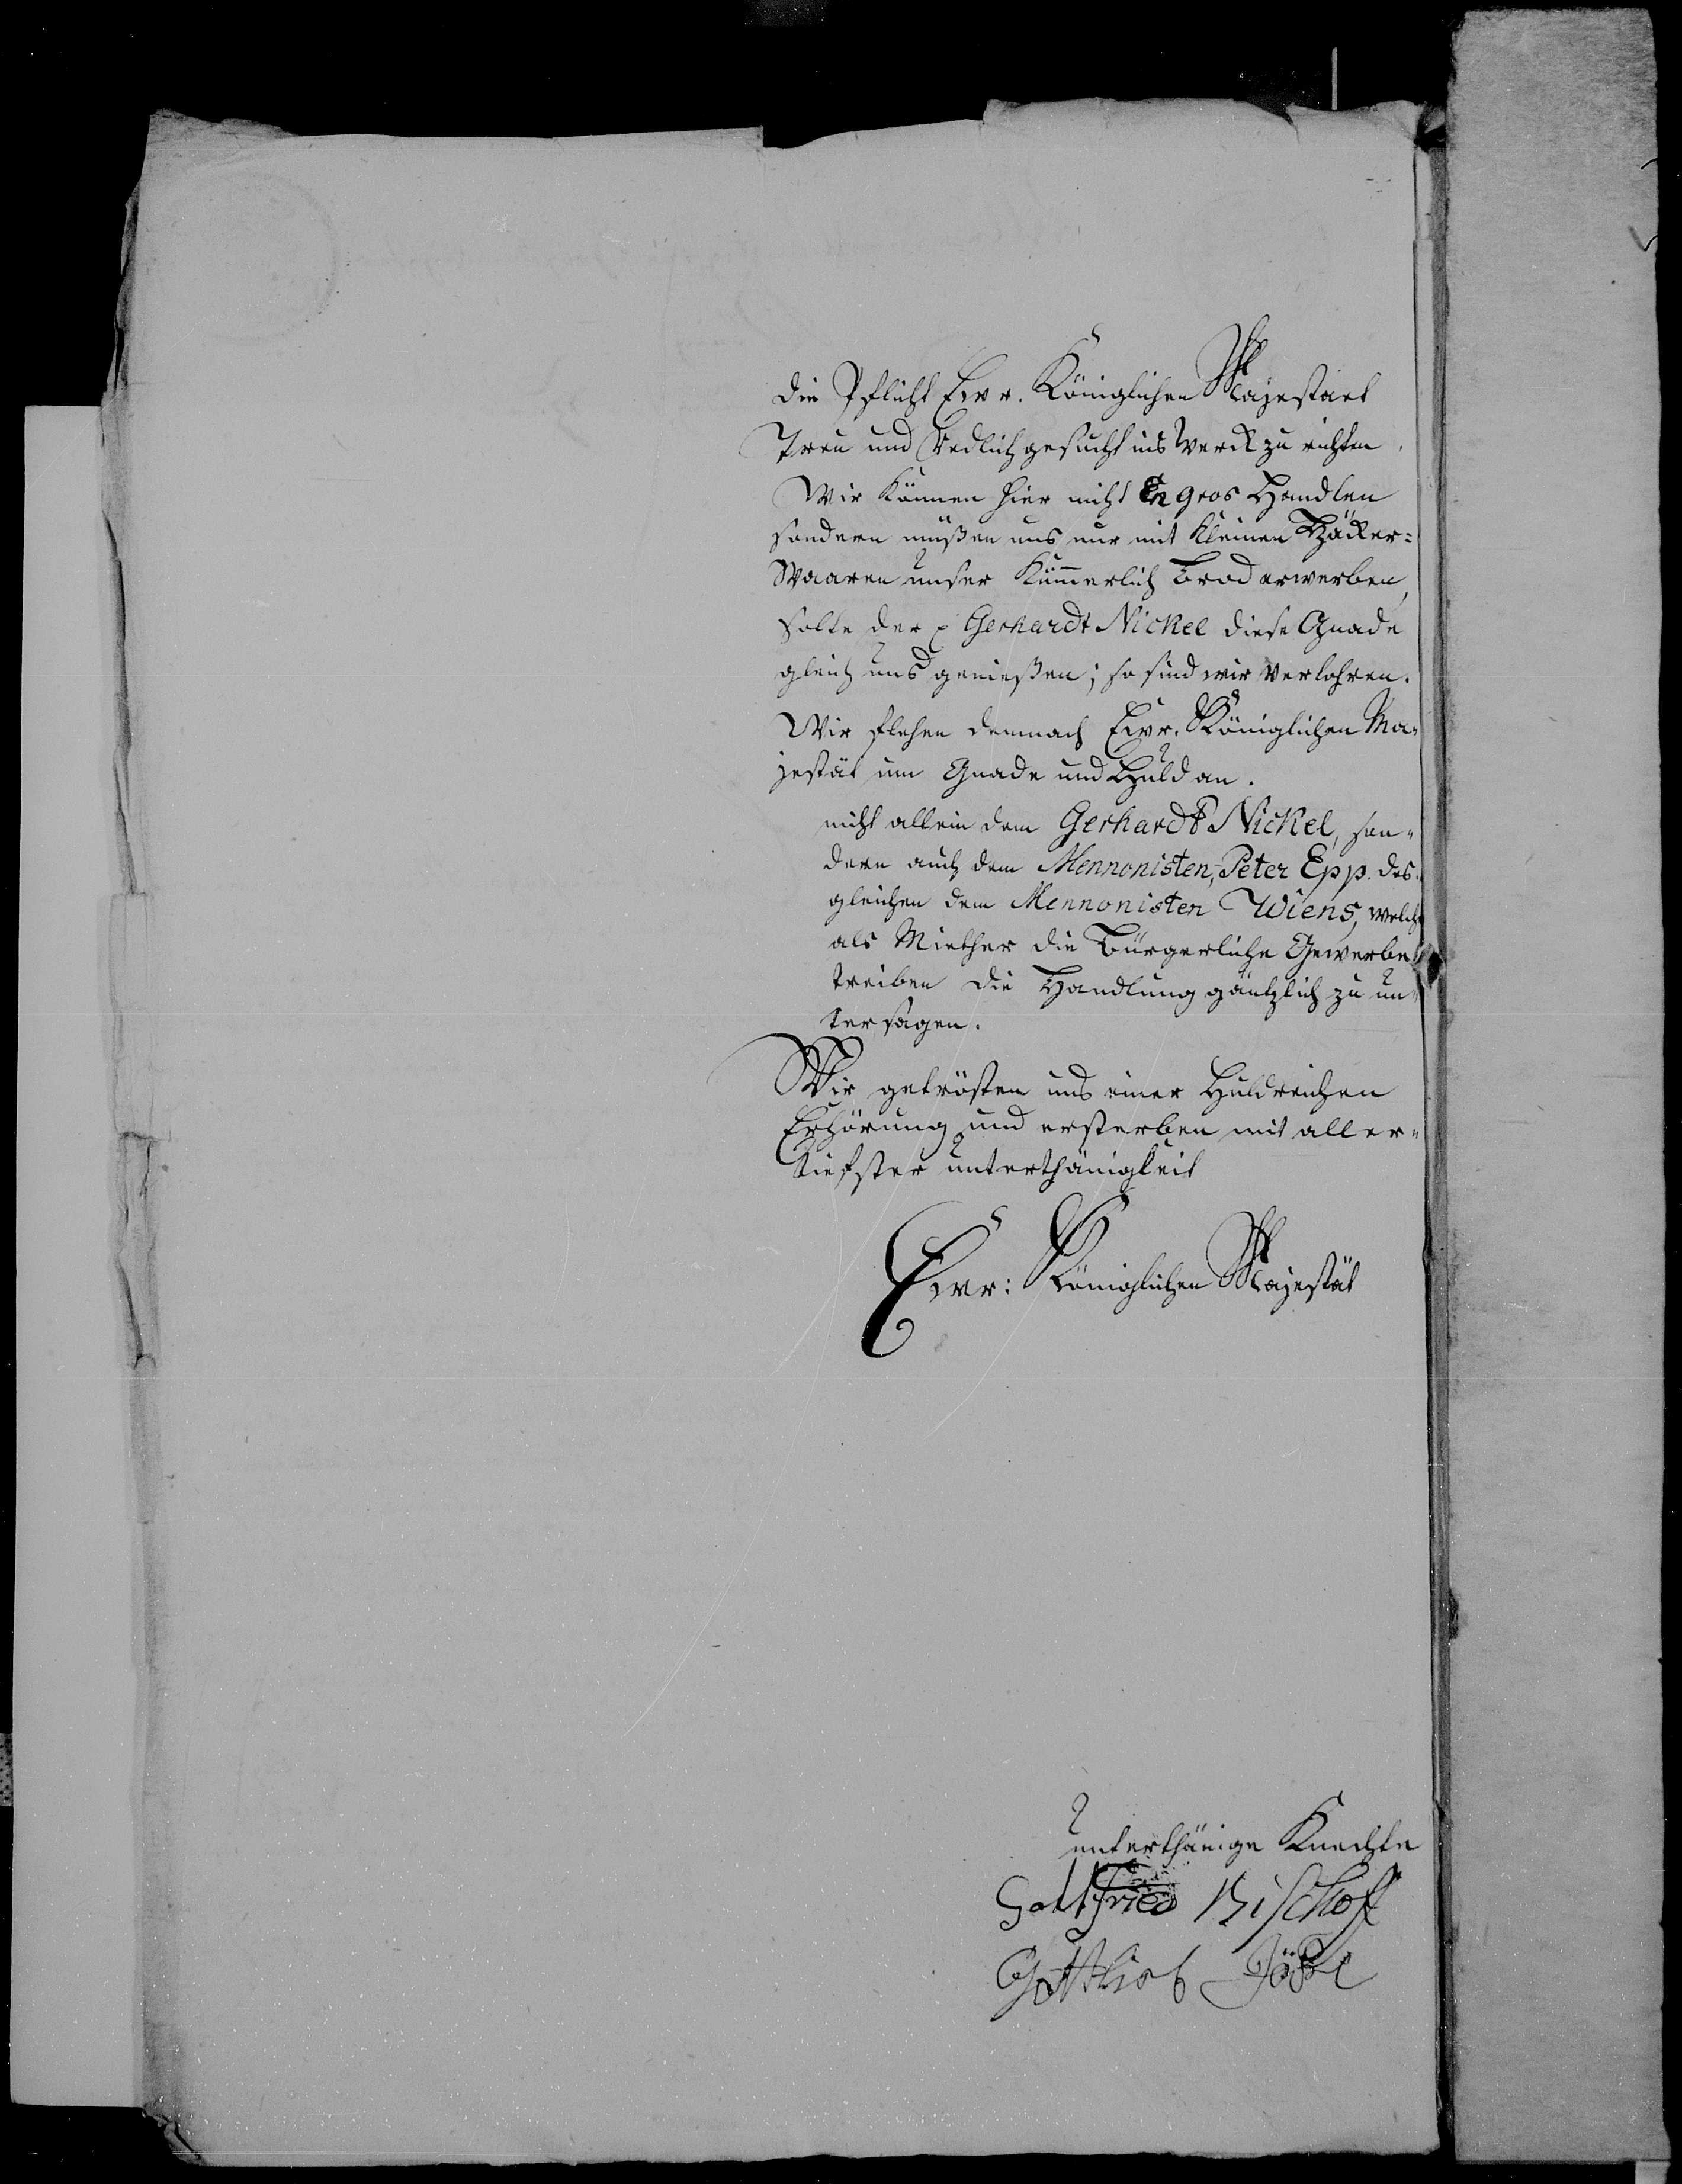 die Pflicht Ewr. Königlichen Majestaet
Treu und Redlich gesucht ins Werck zu richten.
Wir können hier nicht En gros Handlen
sondern müßen uns nur mit kleinen Häker=
Waaren unser Kümmerlich Brod erwerben,
solte der p Gerhardt Nickel diese Gnade
gleich uns genießen; so sind wir verlohren.
Wir flehen demnach Ewr. Königlichen Ma=
jestät um Gnade und Huld an.
nicht allein dem Gerhardt Nickel, son=
dern auch dem Mennonisten, Peter Epp. des=
gleichen dem Mennonisten Wiens, welche
als Miether die Bürgerliche Gewerbe
treiben die Handlung gäntzlich zu un=
tersagen.
Wir getrösten uns einer Huldreichen
Erhörung und ersterben mit aller=
tiefster unterthänigkeit
Ewr: Königlichen Majestät
unterthänige Knechte
Gottfried Bischoff
Gottlieb